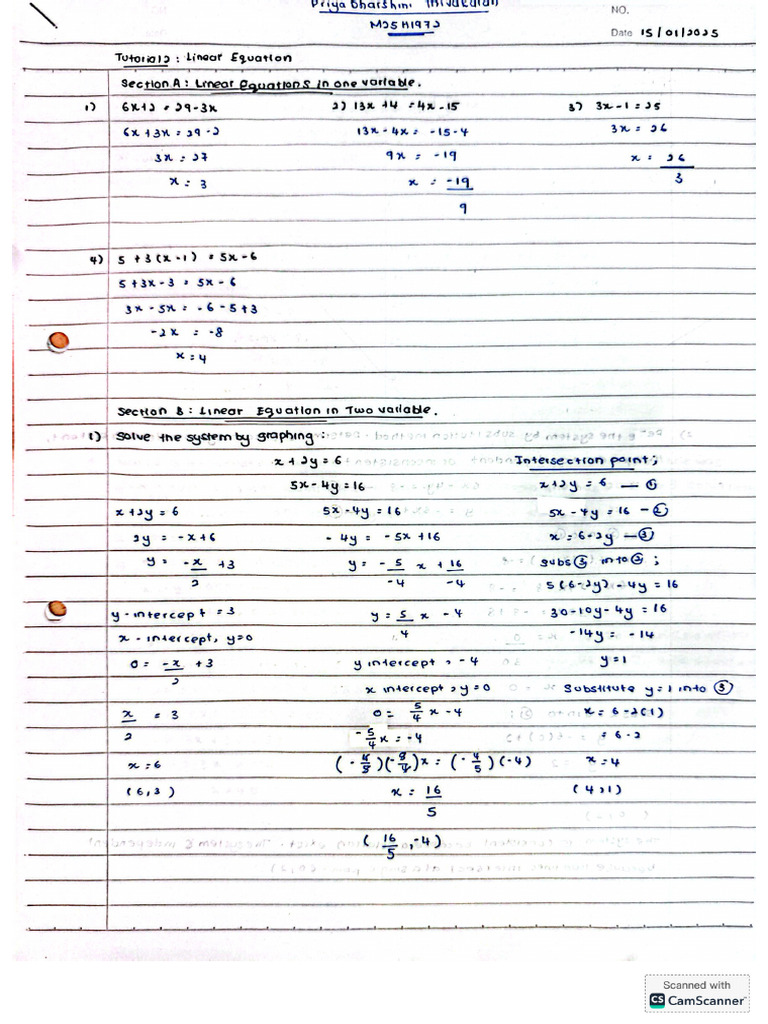 Priya Dharshini
NO.
M25H1972
Date 15/01/2025
Tutorial 2 : Linear Equation
Section A : Linear Equations in one variable.
1) 6x+2 = 29-3x 2) 13x+4 = 4x-15 3) 3x-1 = 25
6x+3x = 29-2 13x-4x = -15-4 3x = 26
3x = 27 9x = -19 x = 26/3
x = 3 x = -19/9
4) 5+3(x-1) = 5x-6
5+3x-3 = 5x-6
3x-5x = -6-5+3
-2x = -8
x = 4
Section B : Linear Equation in Two variable.
1) Solve the system by graphing :
x+2y = 6 Intersection point;
5x-4y = 16 x+2y = 6 — ①
x+2y = 6 5x-4y = 16 5x-4y = 16 — ②
2y = -x+6 -4y = -5x+16 x = 6-2y — ③
y = -x/2 +3 y = -5/-4 x + 16/-4 Subs ③ into ② ;
5(6-2y)-4y = 16
y-intercept = 3 y = 5/4 x - 4 30-10y-4y = 16
x-intercept, y=0 -14y = -14
0 = -x/2 +3 y intercept, -4 y = 1
x intercept, y=0 Substitute y=1 into ③
x/2 = 3 0 = 5/4 x - 4 x = 6-2(1)
-5/4 x = -4 = 6-2
x = 6 (-4/5)(-5/4)x = (-4/5)(-4) x = 4
(6,3) x = 16/5 (4,1)
(16/5, -4)
Scanned with
CS CamScanner